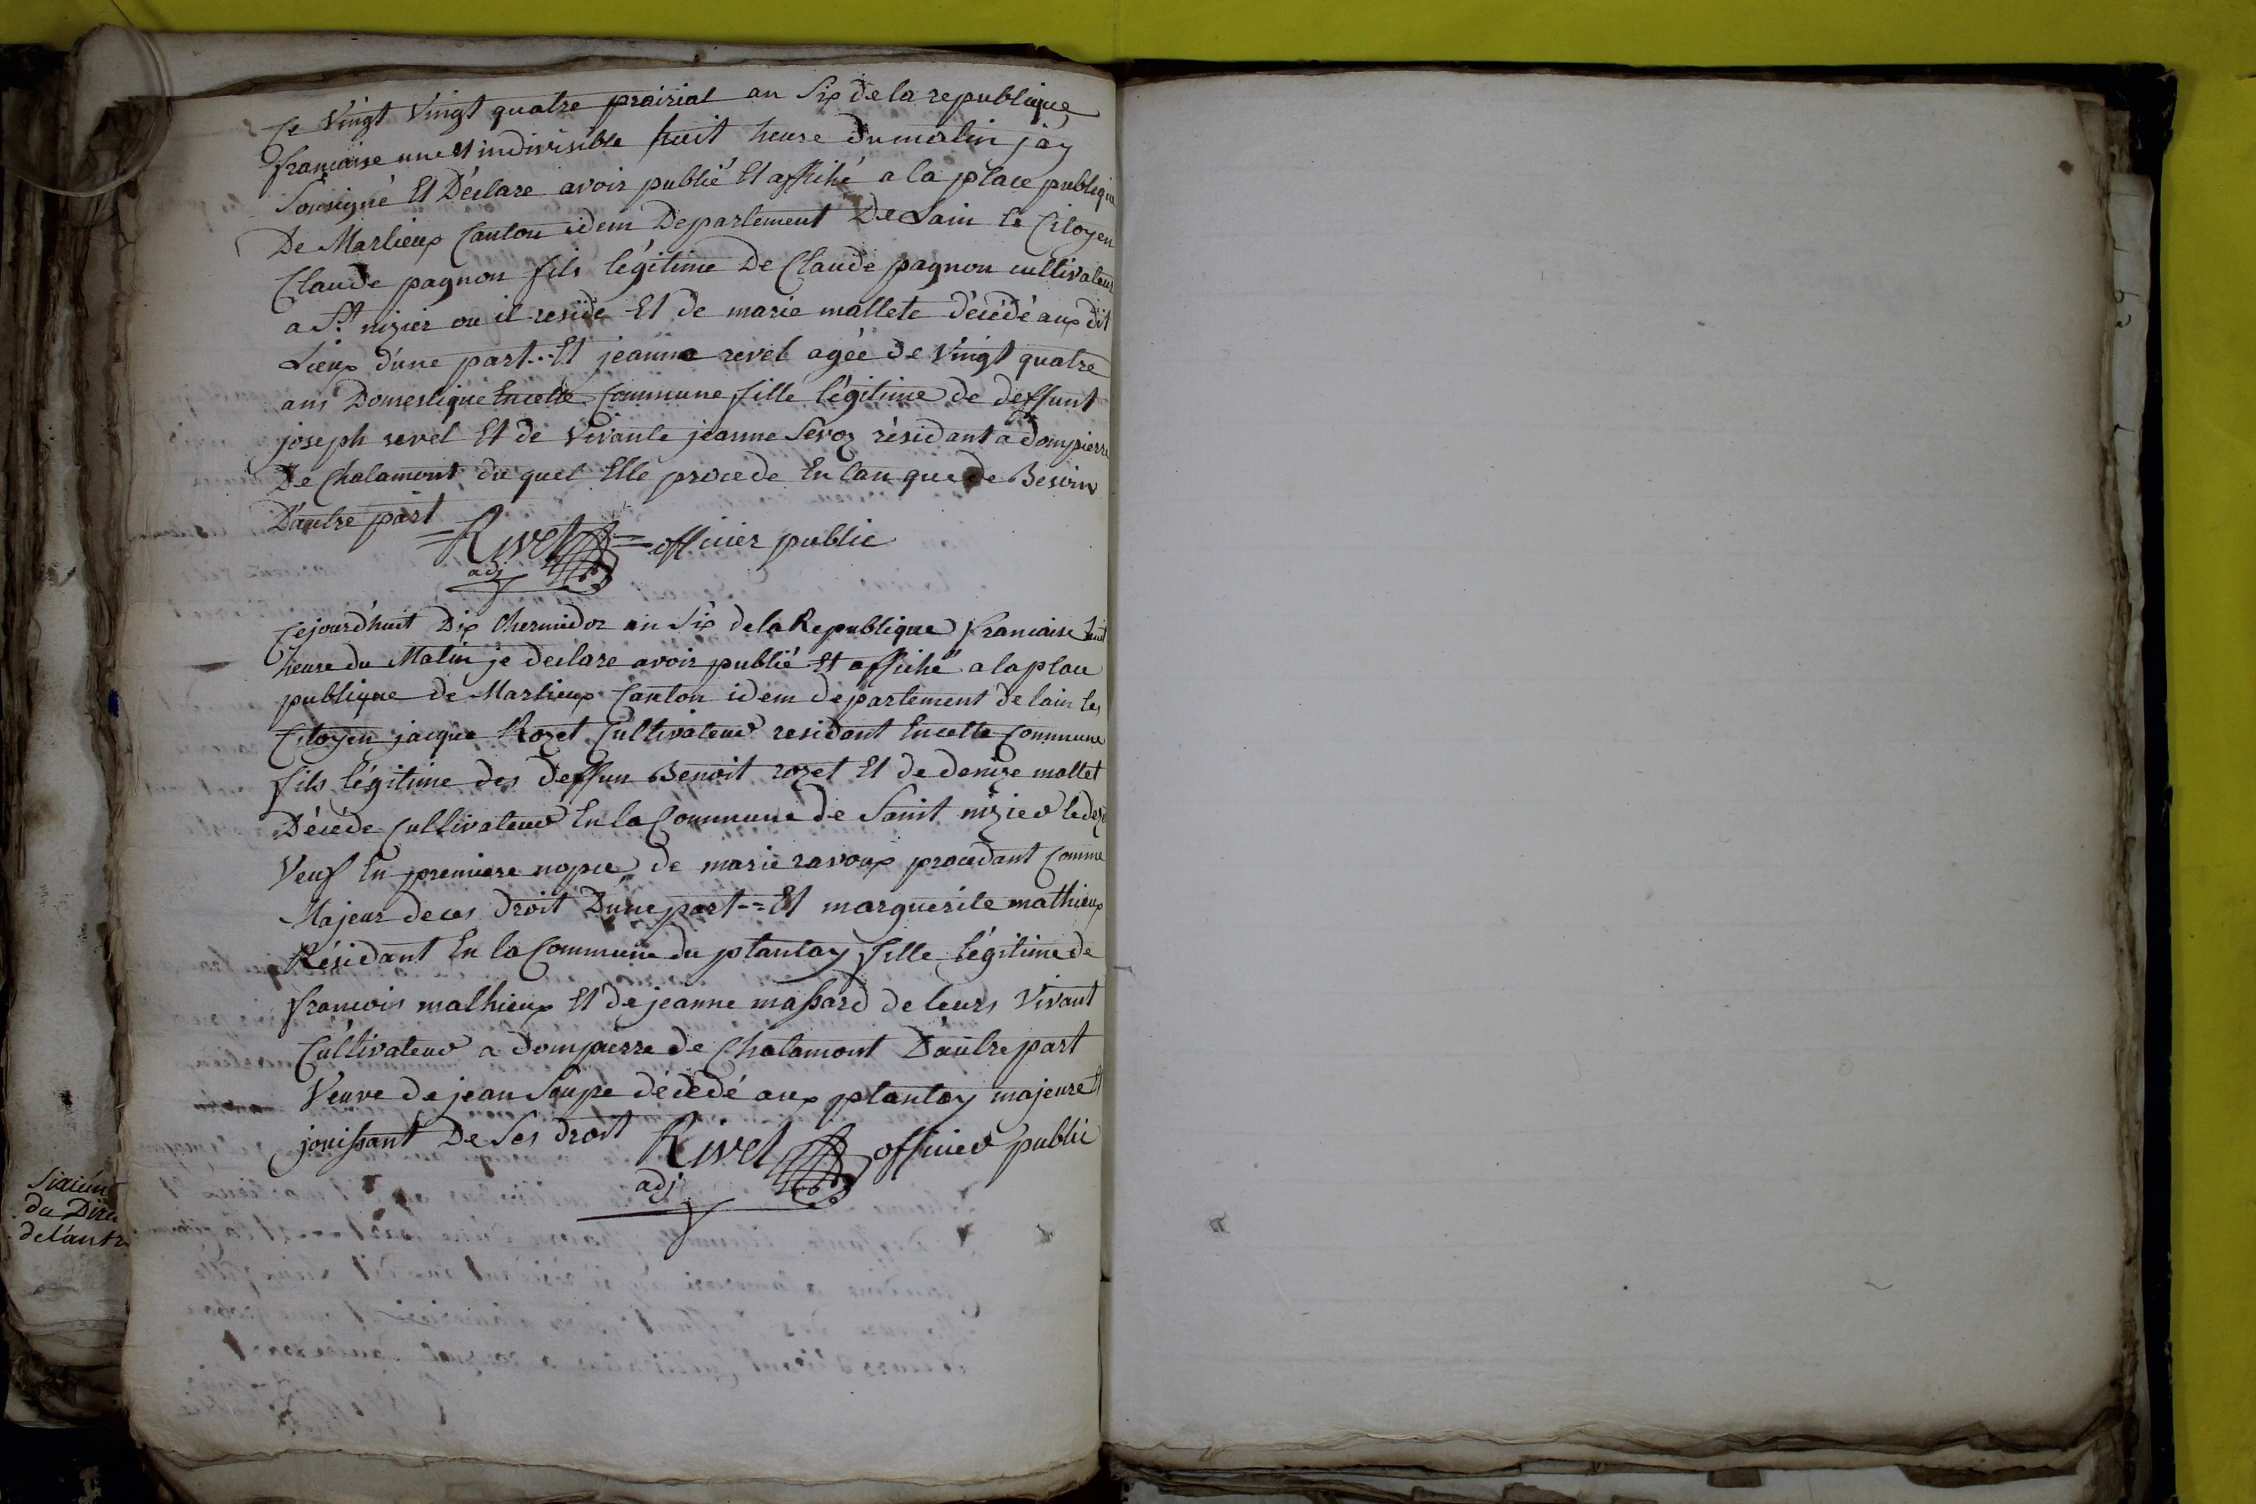 Ce Vingt Vingt quatre prairial an Six de la republique
francaise une et indivisible huit heure du matin jay
Sousigné Et Déclare avoir publié Et affiché a la place publique
De Marlieux Canton idem Departement De Lain le Citoyen
Claude pagnon fils légitime De Claude pagnon cultivateur
a St nizier ou il reside Et de marie mallete décédé aux dit
Lieux d'une part... Et jeanne revel agée de Vingt quatre
ans Domestique Encette Commune fille légitime de deffunt
joseph revel Et de Vivante jeanne Sevoz résidant a dompierre
De Chalamont du quel Elle procede En Cau que de Besoin
D'autre part
= Rivet = officier public
adj
Cejourd'huit Dix thermidor an Six de la Republique francaise huit
heure du Matin je declare avoir publié Et affiché a la place
publique de Marlieux Canton idem departement de lain les
Citoyen jacque Rozet Cultivateur residant Encette Commune
fils légitime des deffun Benoit rozet Et de denize mallet
Décéde Cultivateur En la Commune de Saint nizier le dezer
Veuf En premiere nopce de marie ravoux procedant Comme
Majeur de ces droit D'une part == Et marguerite mathieux
Résidant En la Commune du plantay fille légitime de
francois mathieux Et de jeanne massard de leurs Vivant
Cultivateur a dompierre de Chalamont D'autre part
Veuve de jean Soupe décédé aux plantay majeure et
jouissant De Ses droit Rivet officier public
adj
Sixieme
du Dire
de l'autr